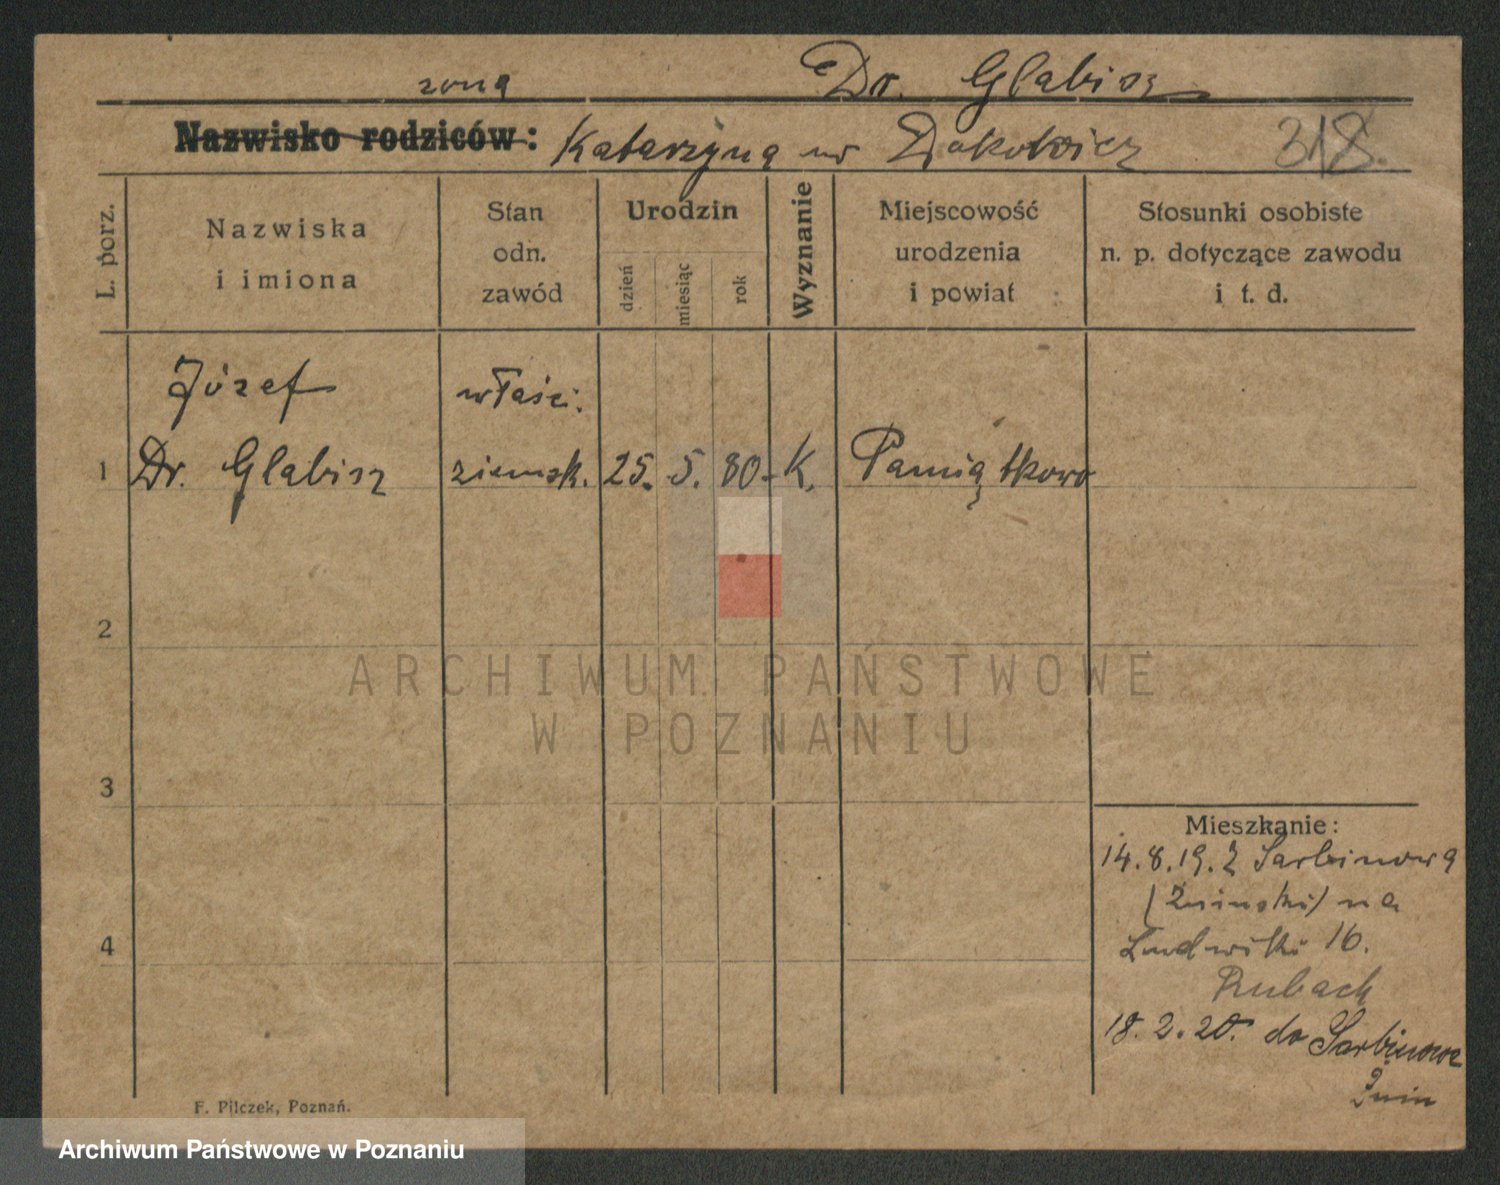 żona Dr. Glabisz
Nazwisko rodziców: Katarzyna ur 318.
L. porz.
Nazwiska
i imiona
Stan
odn.
zawód
Urodzin
dzień
miesiąc
rok
Wyznanie
Miejscowość
urodzenia
i powiat
Stosunki osobiste
n. p. dotyczące zawodu
i t. d.
Józef właści.
1 Dr. Glabisz ziemsk. 25. 5. 80. K. Pamiątkowo
2
ARCHIWUM PAŃSTWOWE
W POZNANIU
3
4
Mieszkanie:
14.8.19. z Sarbinowa
(Żniński) na
Ludwiki 16.
Rubach
18.2.20. do Sarbinowa
Żnin
F. Pilczek, Poznań.
Archiwum Państwowe w Poznaniu